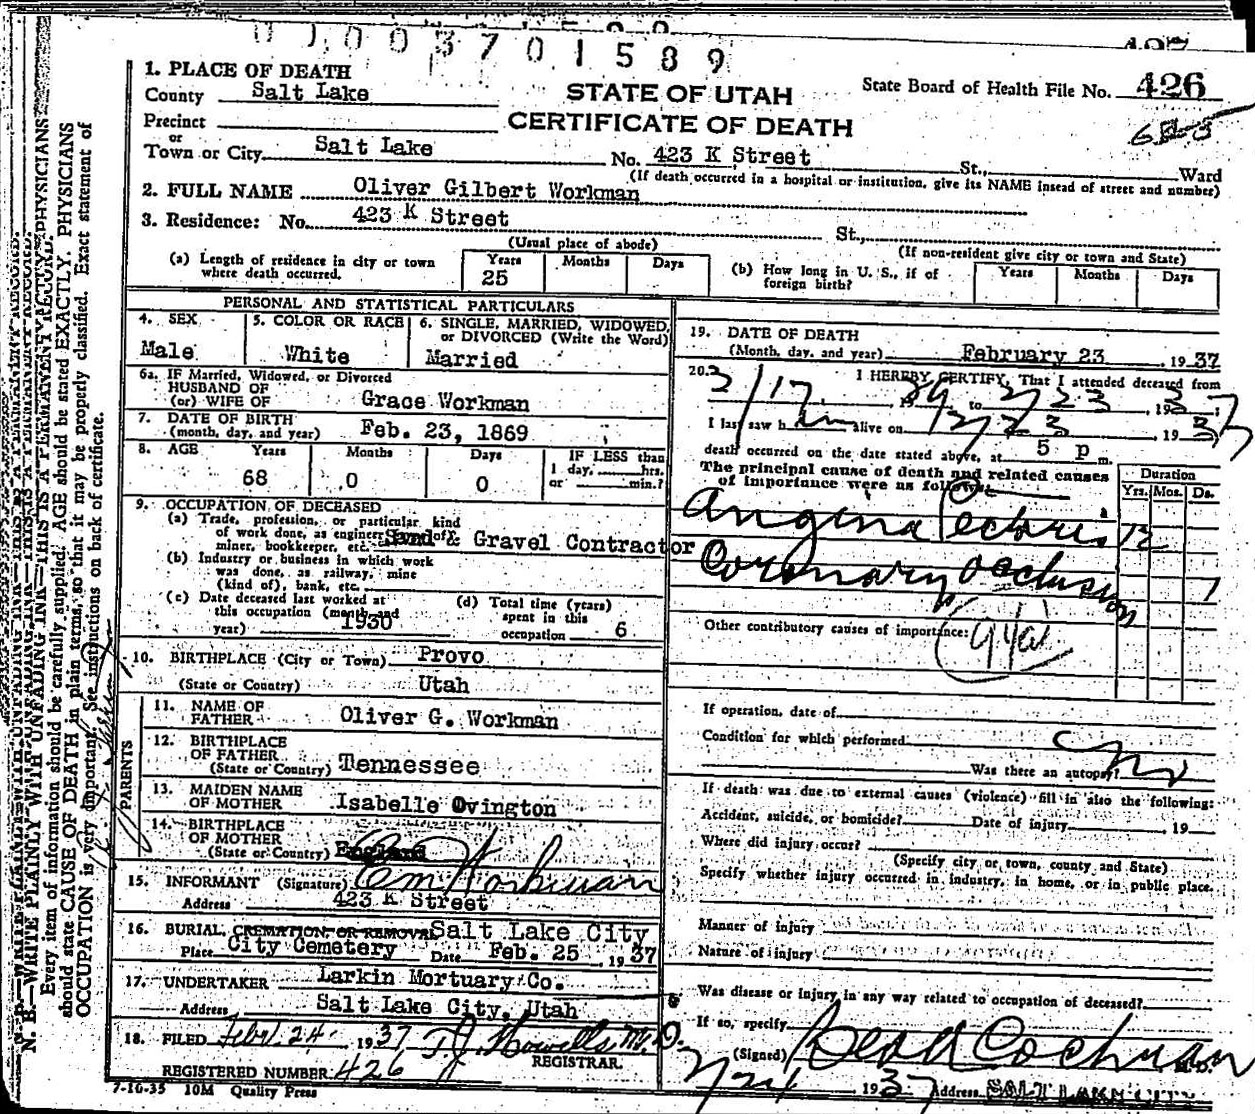 0 0 0 3 7 0 1 5 8 9
1. PLACE OF DEATH
County Salt Lake
STATE OF UTAH
CERTIFICATE OF DEATH
State Board of Health File No. 426
Precinct
or
Town or City Salt Lake No. 423 K Street St., Ward
(If death occurred in a hospital or institution, give its NAME insead of street and number)
2. FULL NAME Oliver Gilbert Workman
3. Residence: No. 423 K Street St.,
(Usual place of abode) (If non-resident give city or town and State)
(a) Length of residence in city or town where death occurred. Years 25 Months Days
(b) How long in U. S., if of foreign birth? Years Months Days
PERSONAL AND STATISTICAL PARTICULARS
4. SEX Male
5. COLOR OR RACE White
6. SINGLE, MARRIED, WIDOWED, or DIVORCED (Write the Word) Married
6a. IF Married, Widowed, or Divorced
HUSBAND OF
(or) WIFE OF Grace Workman
7. DATE OF BIRTH
(month, day, and year) Feb. 23, 1869
8. AGE Years 68 Months 0 Days 0
IF LESS than 1 day, hrs. or min.?
9. OCCUPATION OF DECEASED
(a) Trade, profession, or particular kind
of work done, as engineer,
miner, bookkeeper, etc. Sand & Gravel Contractor
(b) Industry or business in which work
was done, as railway, mine
(kind of), bank, etc.
(c) Date deceased last worked at
this occupation (month and
year) 1930
(d) Total time (years)
spent in this
occupation 6
10. BIRTHPLACE (City or Town) Provo
(State or Country) Utah
PARENTS
11. NAME OF
FATHER Oliver G. Workman
12. BIRTHPLACE
OF FATHER
(State or Country) Tennessee
13. MAIDEN NAME
OF MOTHER Isabelle Ovington
14. BIRTHPLACE
OF MOTHER
(State or Country) England
15. INFORMANT (Signature) Workman
Address 423 K Street
16. BURIAL, CREMATION, OR REMOVAL Salt Lake City
Place City Cemetery Date Feb. 25, 1937
17. UNDERTAKER Larkin Mortuary Co.
Address Salt Lake City, Utah
18. FILED Feb. 24 1937 T. J. Howells M. D.
REGISTRAR.
REGISTERED NUMBER 426
7-10-35 10M Quality Press
19. DATE OF DEATH
(Month, day, and year) February 23 1937
20. I HEREBY CERTIFY, That I attended deceased from
to 2/23, 1937;
I last saw him alive on 2/23 1937
death occurred on the date stated above, at 5 p m.
The principal cause of death and related causes
of importance were as follows:
Duration
Yrs. Mos. Ds.
Angina Pectoris 12
Coronary occlusion 1
Other contributory causes of importance:
94a
If operation, date of
Condition for which performed
Was there an autopsy? no
If death was due to external causes (violence) fill in also the following:
Accident, suicide, or homicide? Date of injury 19
Where did injury occur?
(Specify city or town, county and State)
Specify whether injury occurred in industry, in home, or in public place.
Manner of injury
Nature of injury
Was disease or injury in any way related to occupation of deceased?
If so, specify
(Signed) Cochran M.D.
2/24 1937 Address SALT LAKE CITY
N. B.—WRITE PLAINLY WITH UNFADING INK—THIS IS A PERMANENT RECORD.
Every item of information should be carefully supplied. AGE should be stated EXACTLY. PHYSICIANS
should state CAUSE OF DEATH in plain terms, so that it may be properly classified. Exact statement of
OCCUPATION is very important. See instructions on back of certificate.